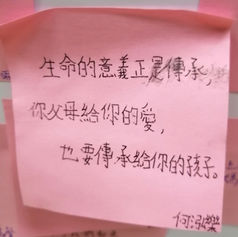 生命的意義正是傳承，
你父母給你的愛，
也要傳承給你的孩子。
何泓樂